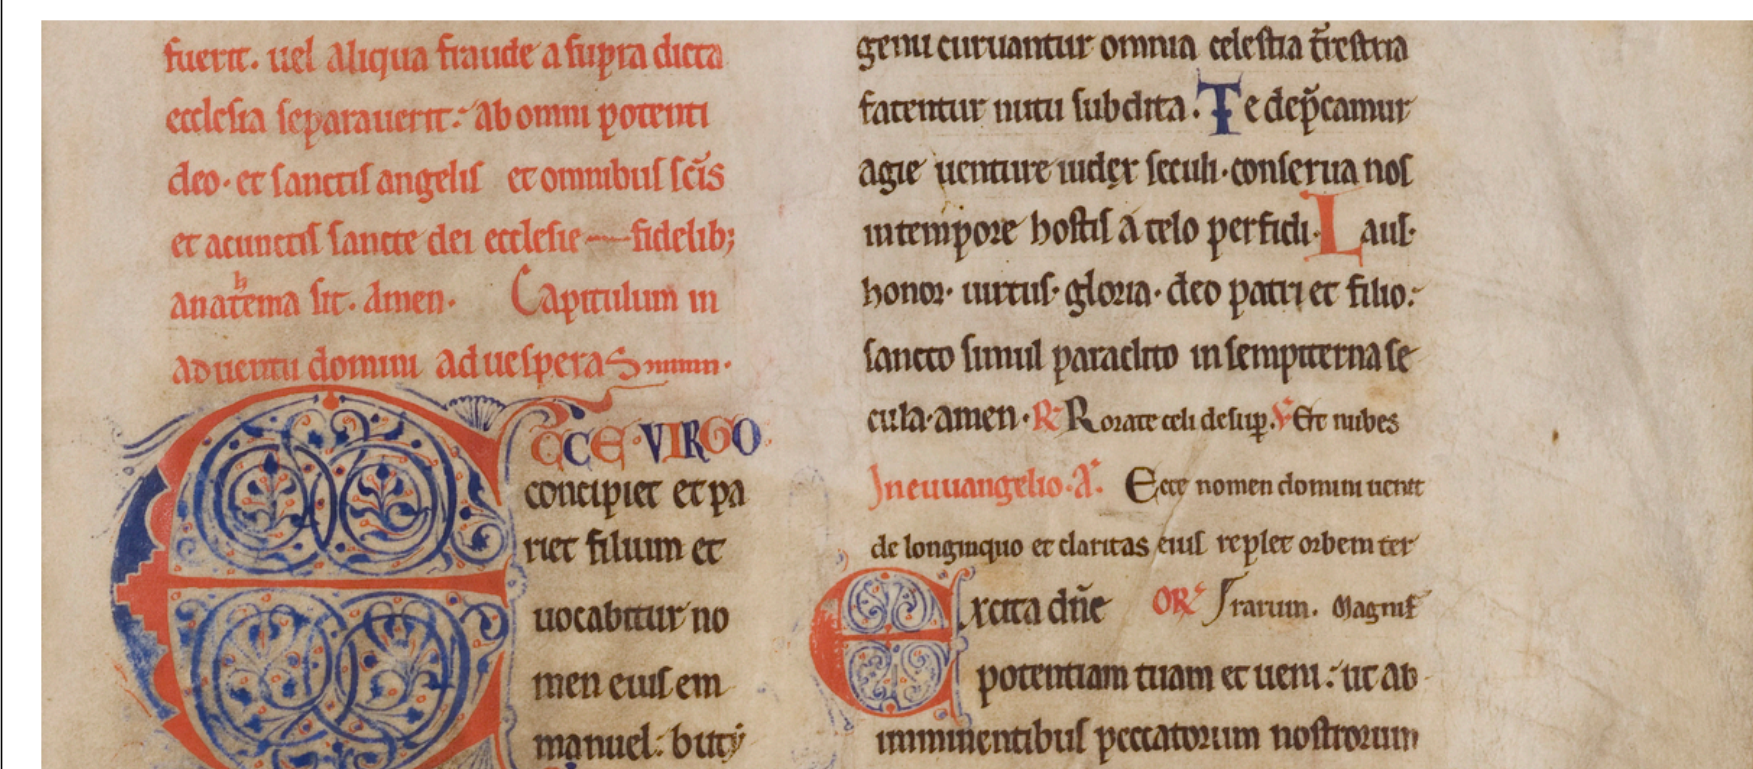 fuerit. uel aliqua fraude a supra dicta
ecclesia separauerit: ab omni potenti
deo. et sanctis angelis et omnibus sc̄is
et a cunctis sancte dei ecclesie—fidelib;
anathema sit. Amen. Capitulum in
aduentu domini ad uesperas
ECCE VIRGO
concipiet et pa
riet filium et
uocabitur no
men eius em
manuel: buty
genu curuantur omnia celestia t̄restria
fatentur nutu subdita. Te dep̄camur
agie uenture iudex seculi. conserua nos
in tempore hostis a telo perfidi. Laus.
honor. uirtus. gloria. deo patri et filio.
sancto simul paraclito in sempiterna se
cula. amen. R Rorate celi desup. V Et nubes
In euuangelio. A. Ecce nomen domini uenit
de longinquo et claritas eius replet orbem ter
Excita dn̄e OR rarum. Magnif
potentiam tuam et ueni: ut ab
imminentibus peccatorum nostrorum